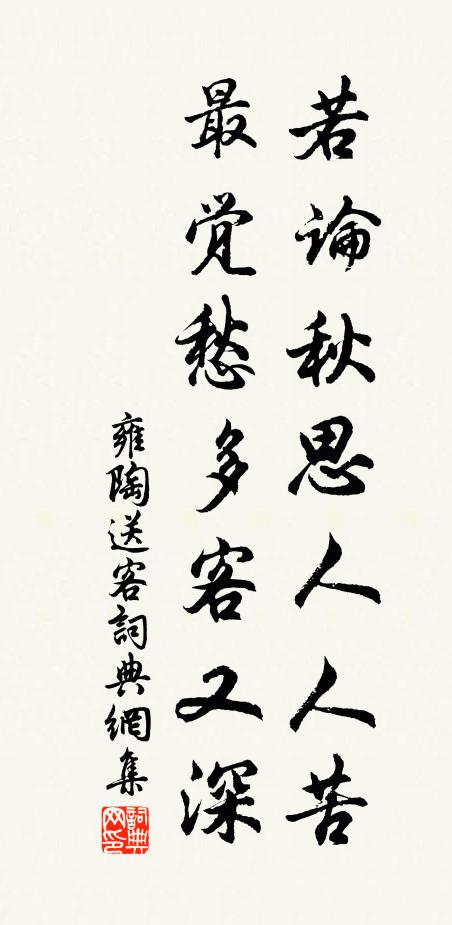 若論秋思人人苦
最覚愁多客又深
雍陶送客詞典網集
詞典
网印